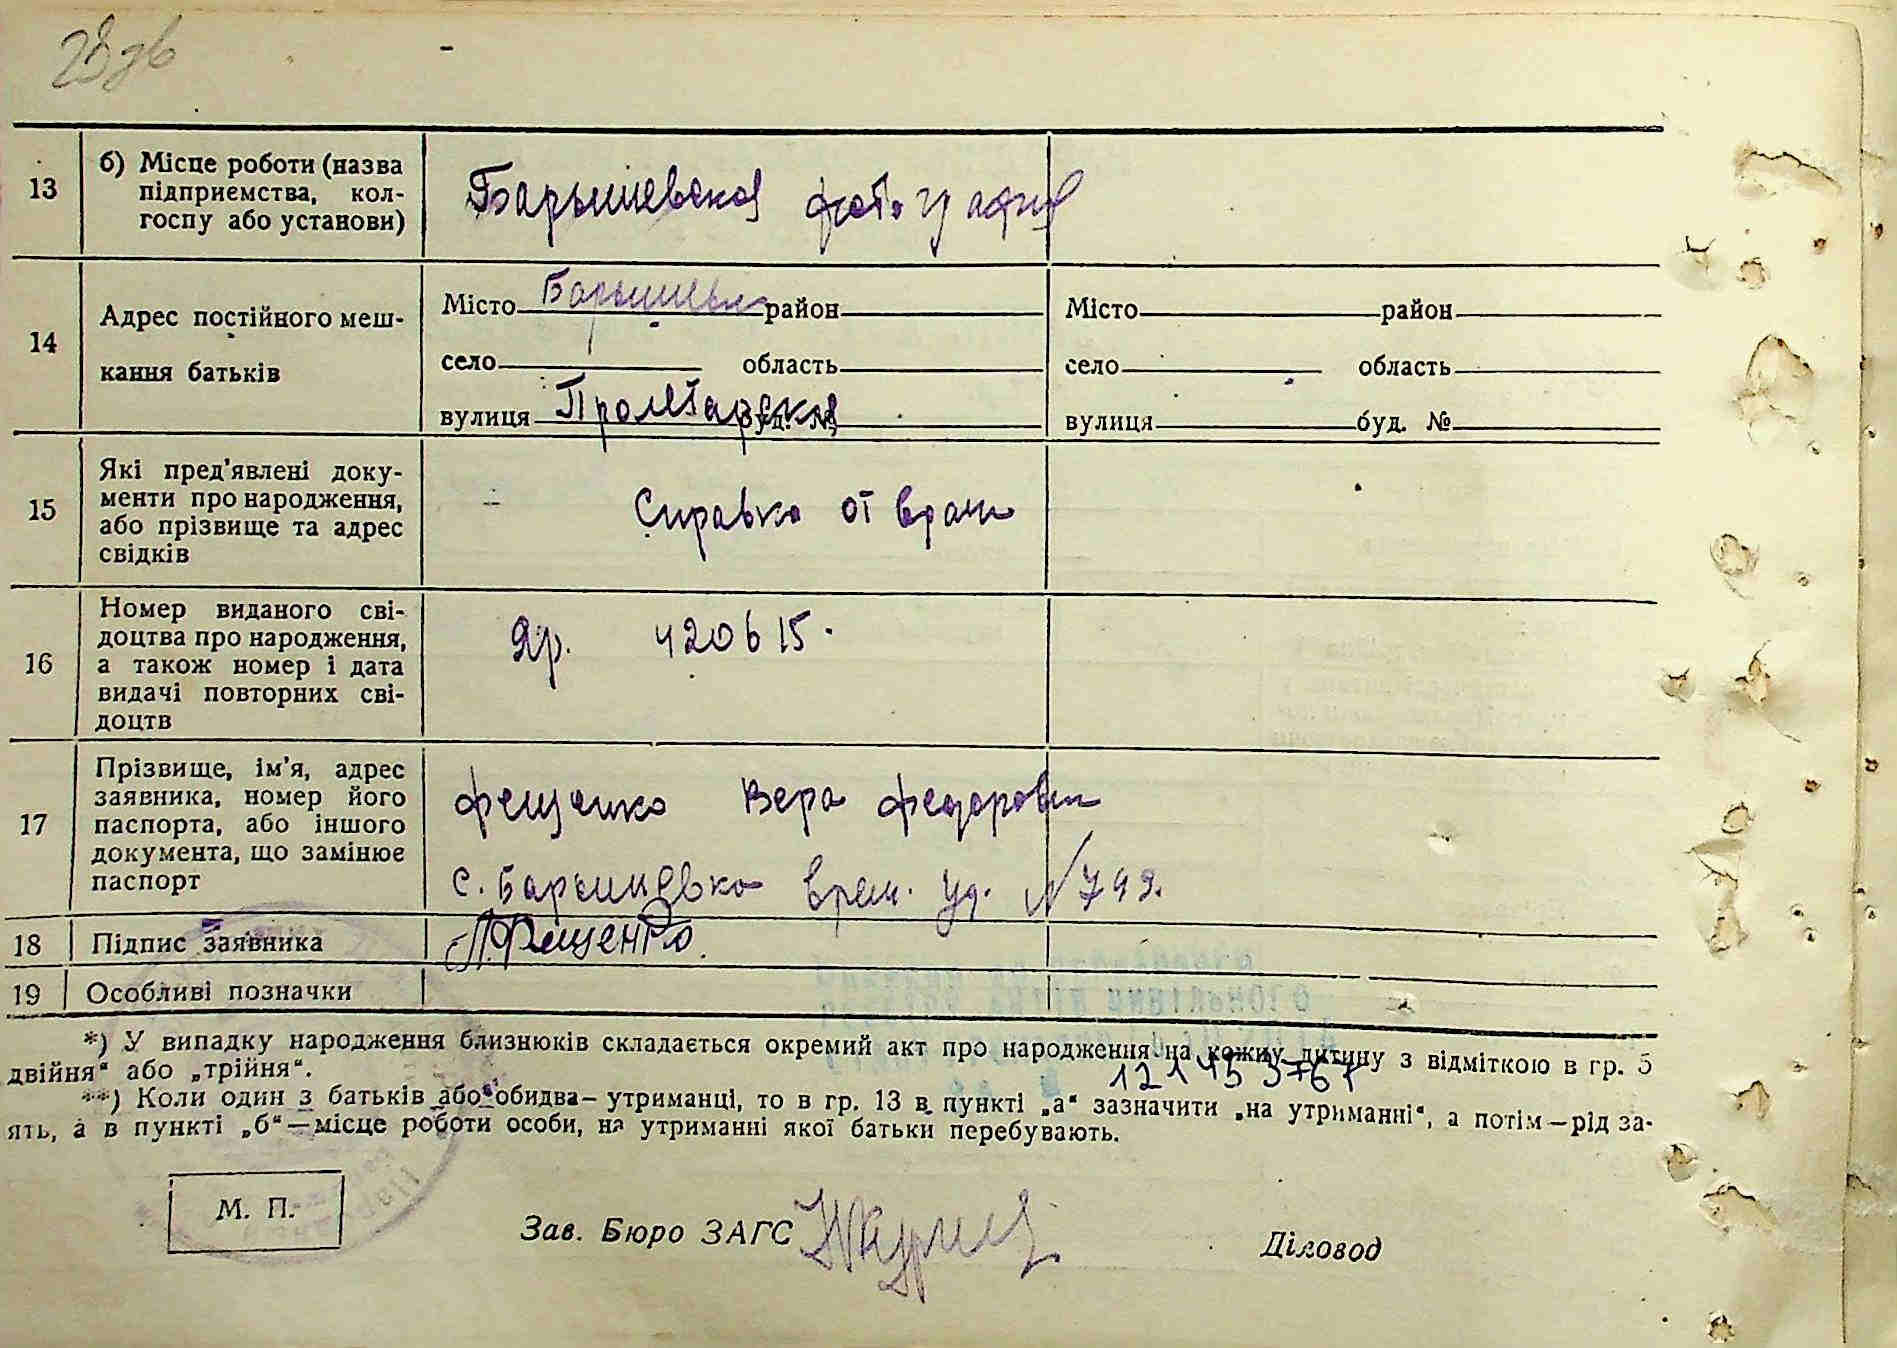 28зв
13
б) Місце роботи (назва
підприємства, кол-
госпу або установи)
Барышевская фотография
14
Адрес постійного меш-
кання батьків
Місто Барышевка район
село область
вулиця Пролетарская буд. №
Місто район
село область
вулиця буд. №
15
Які пред'явлені доку-
менти про народження,
або прізвище та адрес
свідків
Справка от врача
16
Номер виданого сві-
доцтва про народження,
а також номер і дата
видачі повторних сві-
доцтв
420615.
17
Прізвище, ім'я, адрес
заявника, номер його
паспорта, або іншого
документа, що замінює
паспорт
Фещенко Вера Федоровна
с. Барышевка врем. уд. № 749.
18
Підпис заявника
Фещенко
19
Особливі позначки
*) У випадку народження близнюків складається окремий акт про народження на кожну дитину з відміткою в гр. 5
двійня“ або „трійня“.
**) Коли один з батьків або обидва — утриманці, то в гр. 13 в пункті „а“ зазначити „на утриманні“, а потім — рід за-
ять, а в пункті „б“ — місце роботи особи, на утриманні якої батьки перебувають.
М. П.
Зав. Бюро ЗАГС
Діловод